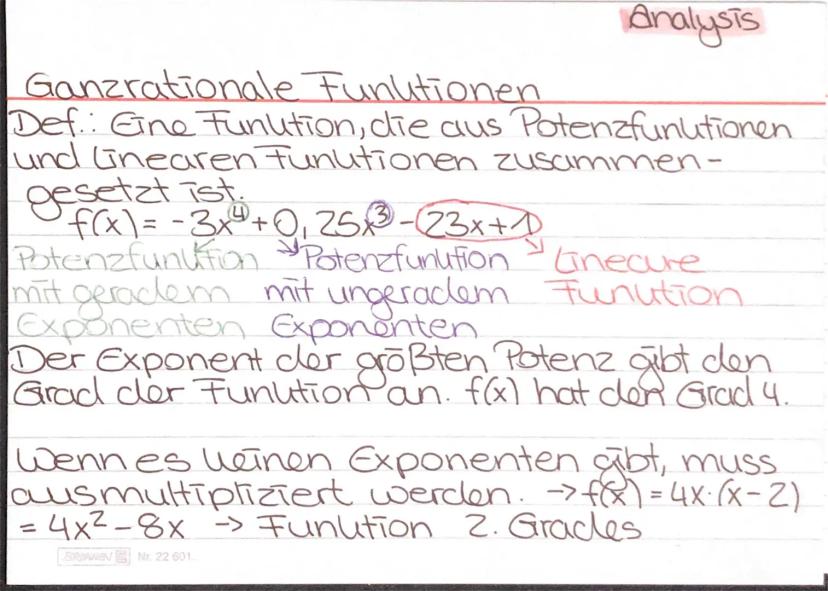 Analysis
Ganzrationale Funktionen
Def.: Eine Funktion, die aus Potenzfunktionen
und linearen Funktionen zusammen-
gesetzt ist.
f(x) = -3x⁴ + 0,25x³ - 23x+1
Potenzfunktion Potenzfunktion Lineare
mit geradem mit ungeradem Funktion
Exponenten Exponenten
Der Exponent der größten Potenz gibt den
Grad der Funktion an. f(x) hat den Grad 4.
Wenn es keinen Exponenten gibt, muss
ausmultipliziert werden. → f(x) = 4x·(x-2)
= 4x² - 8x → Funktion 2. Grades
Nr. 22 601